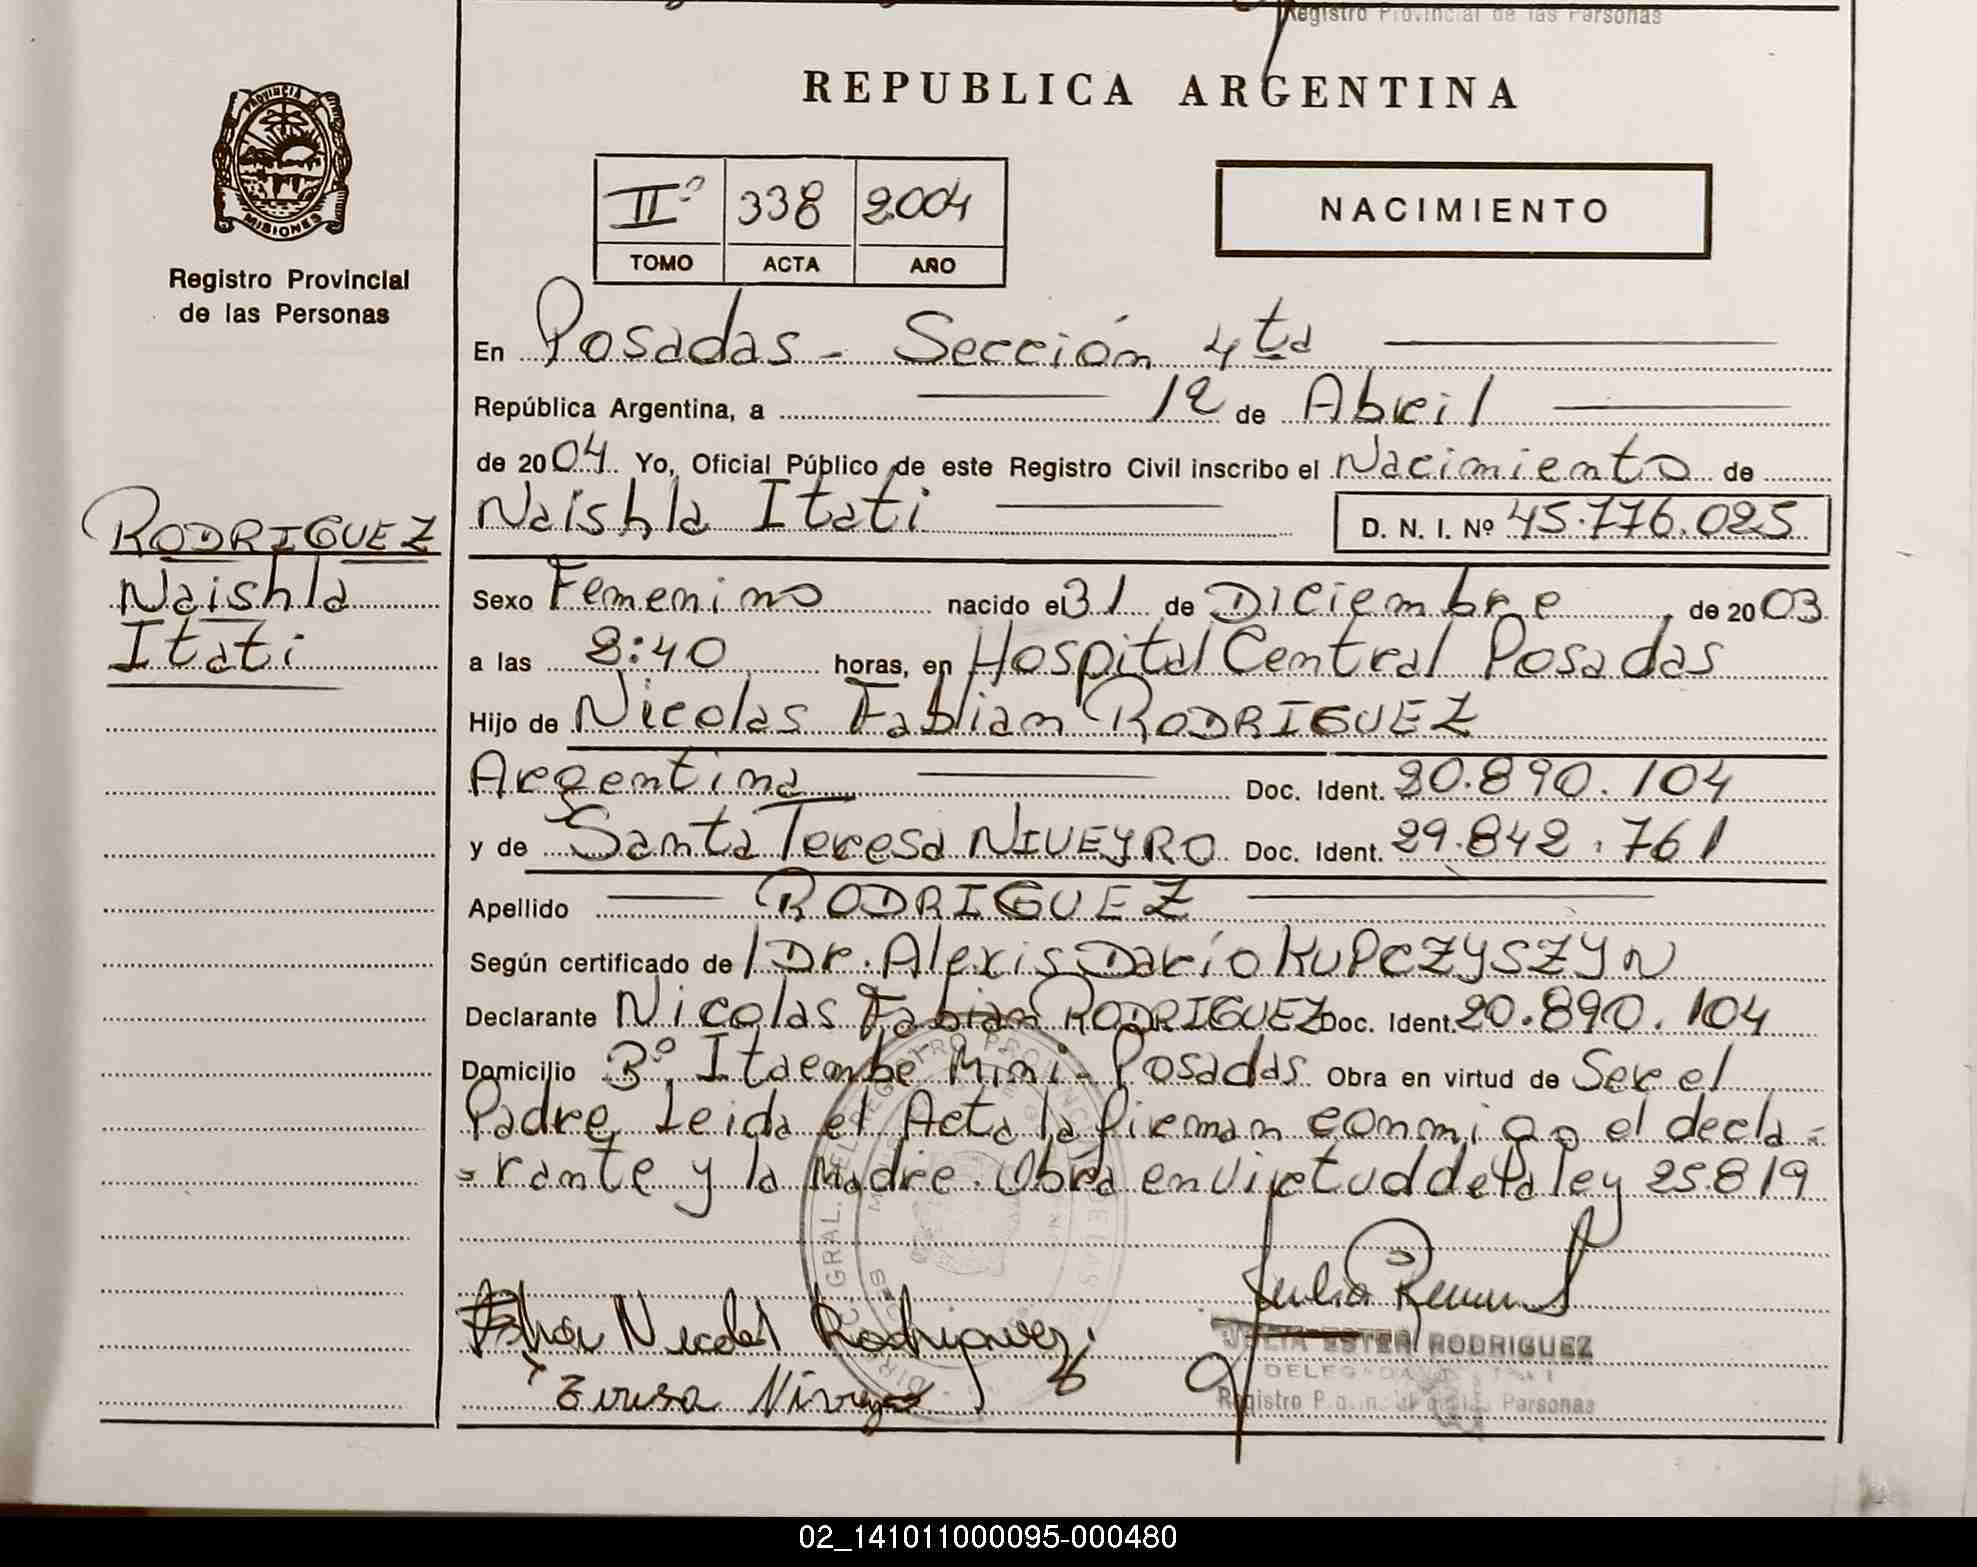 Registro Provincial de las Personas
REPUBLICA ARGENTINA
PROVINCIA
MISIONES
Registro Provincial
de las Personas
IIº 338 2004
TOMO ACTA AÑO
NACIMIENTO
En Posadas - Sección 4ta
República Argentina, a 12 de Abril
de 2004 Yo, Oficial Público de este Registro Civil inscribo el Nacimiento de
Naishla Itati D. N. I. Nº 45.776.025
RODRIGUEZ
Naishla
Itati
Sexo Femenino nacido el 31 de Diciembre de 2003
a las 8:40 horas, en Hospital Central Posadas
Hijo de Nicolas Fabian RODRIGUEZ
Argentina Doc. Ident. 20.890.104
y de Santa Teresa NIVEYRO Doc. Ident. 29.842.761
Apellido RODRIGUEZ
Según certificado de Dr. Alexis Darío KUPCZYSZYN
Declarante Nicolas Fabian RODRIGUEZ Doc. Ident. 20.890.104
Domicilio Bº Itaembe Mini - Posadas Obra en virtud de Ser el
Padre, Leida el Acta la firman conmigo el decla-
-rante y la Madre. Obra en Virtud de la ley 25819
Nicolas Rodriguez
Teresa Niveyro
JULIA ESTER RODRIGUEZ
DELEGADA
Registro Provincial de las Personas
02_141011000095-000480